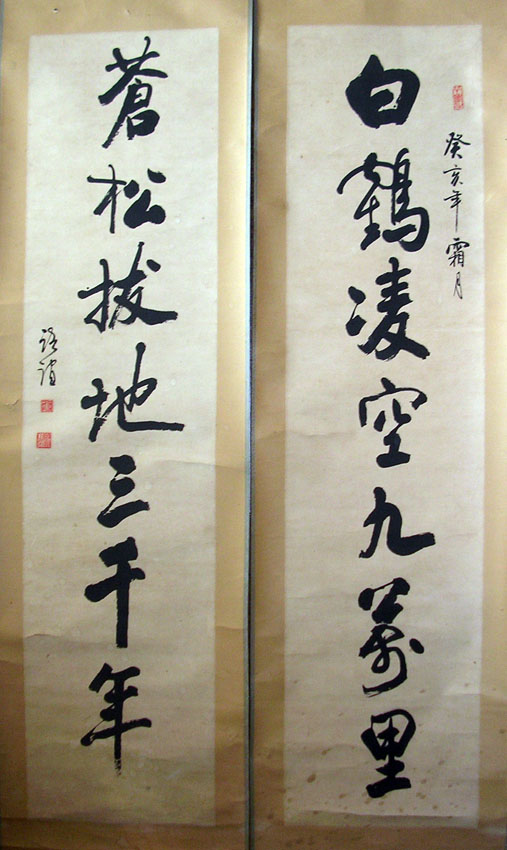 癸亥年霜月
白鶴凌空九萬里
蒼松拔地三千年